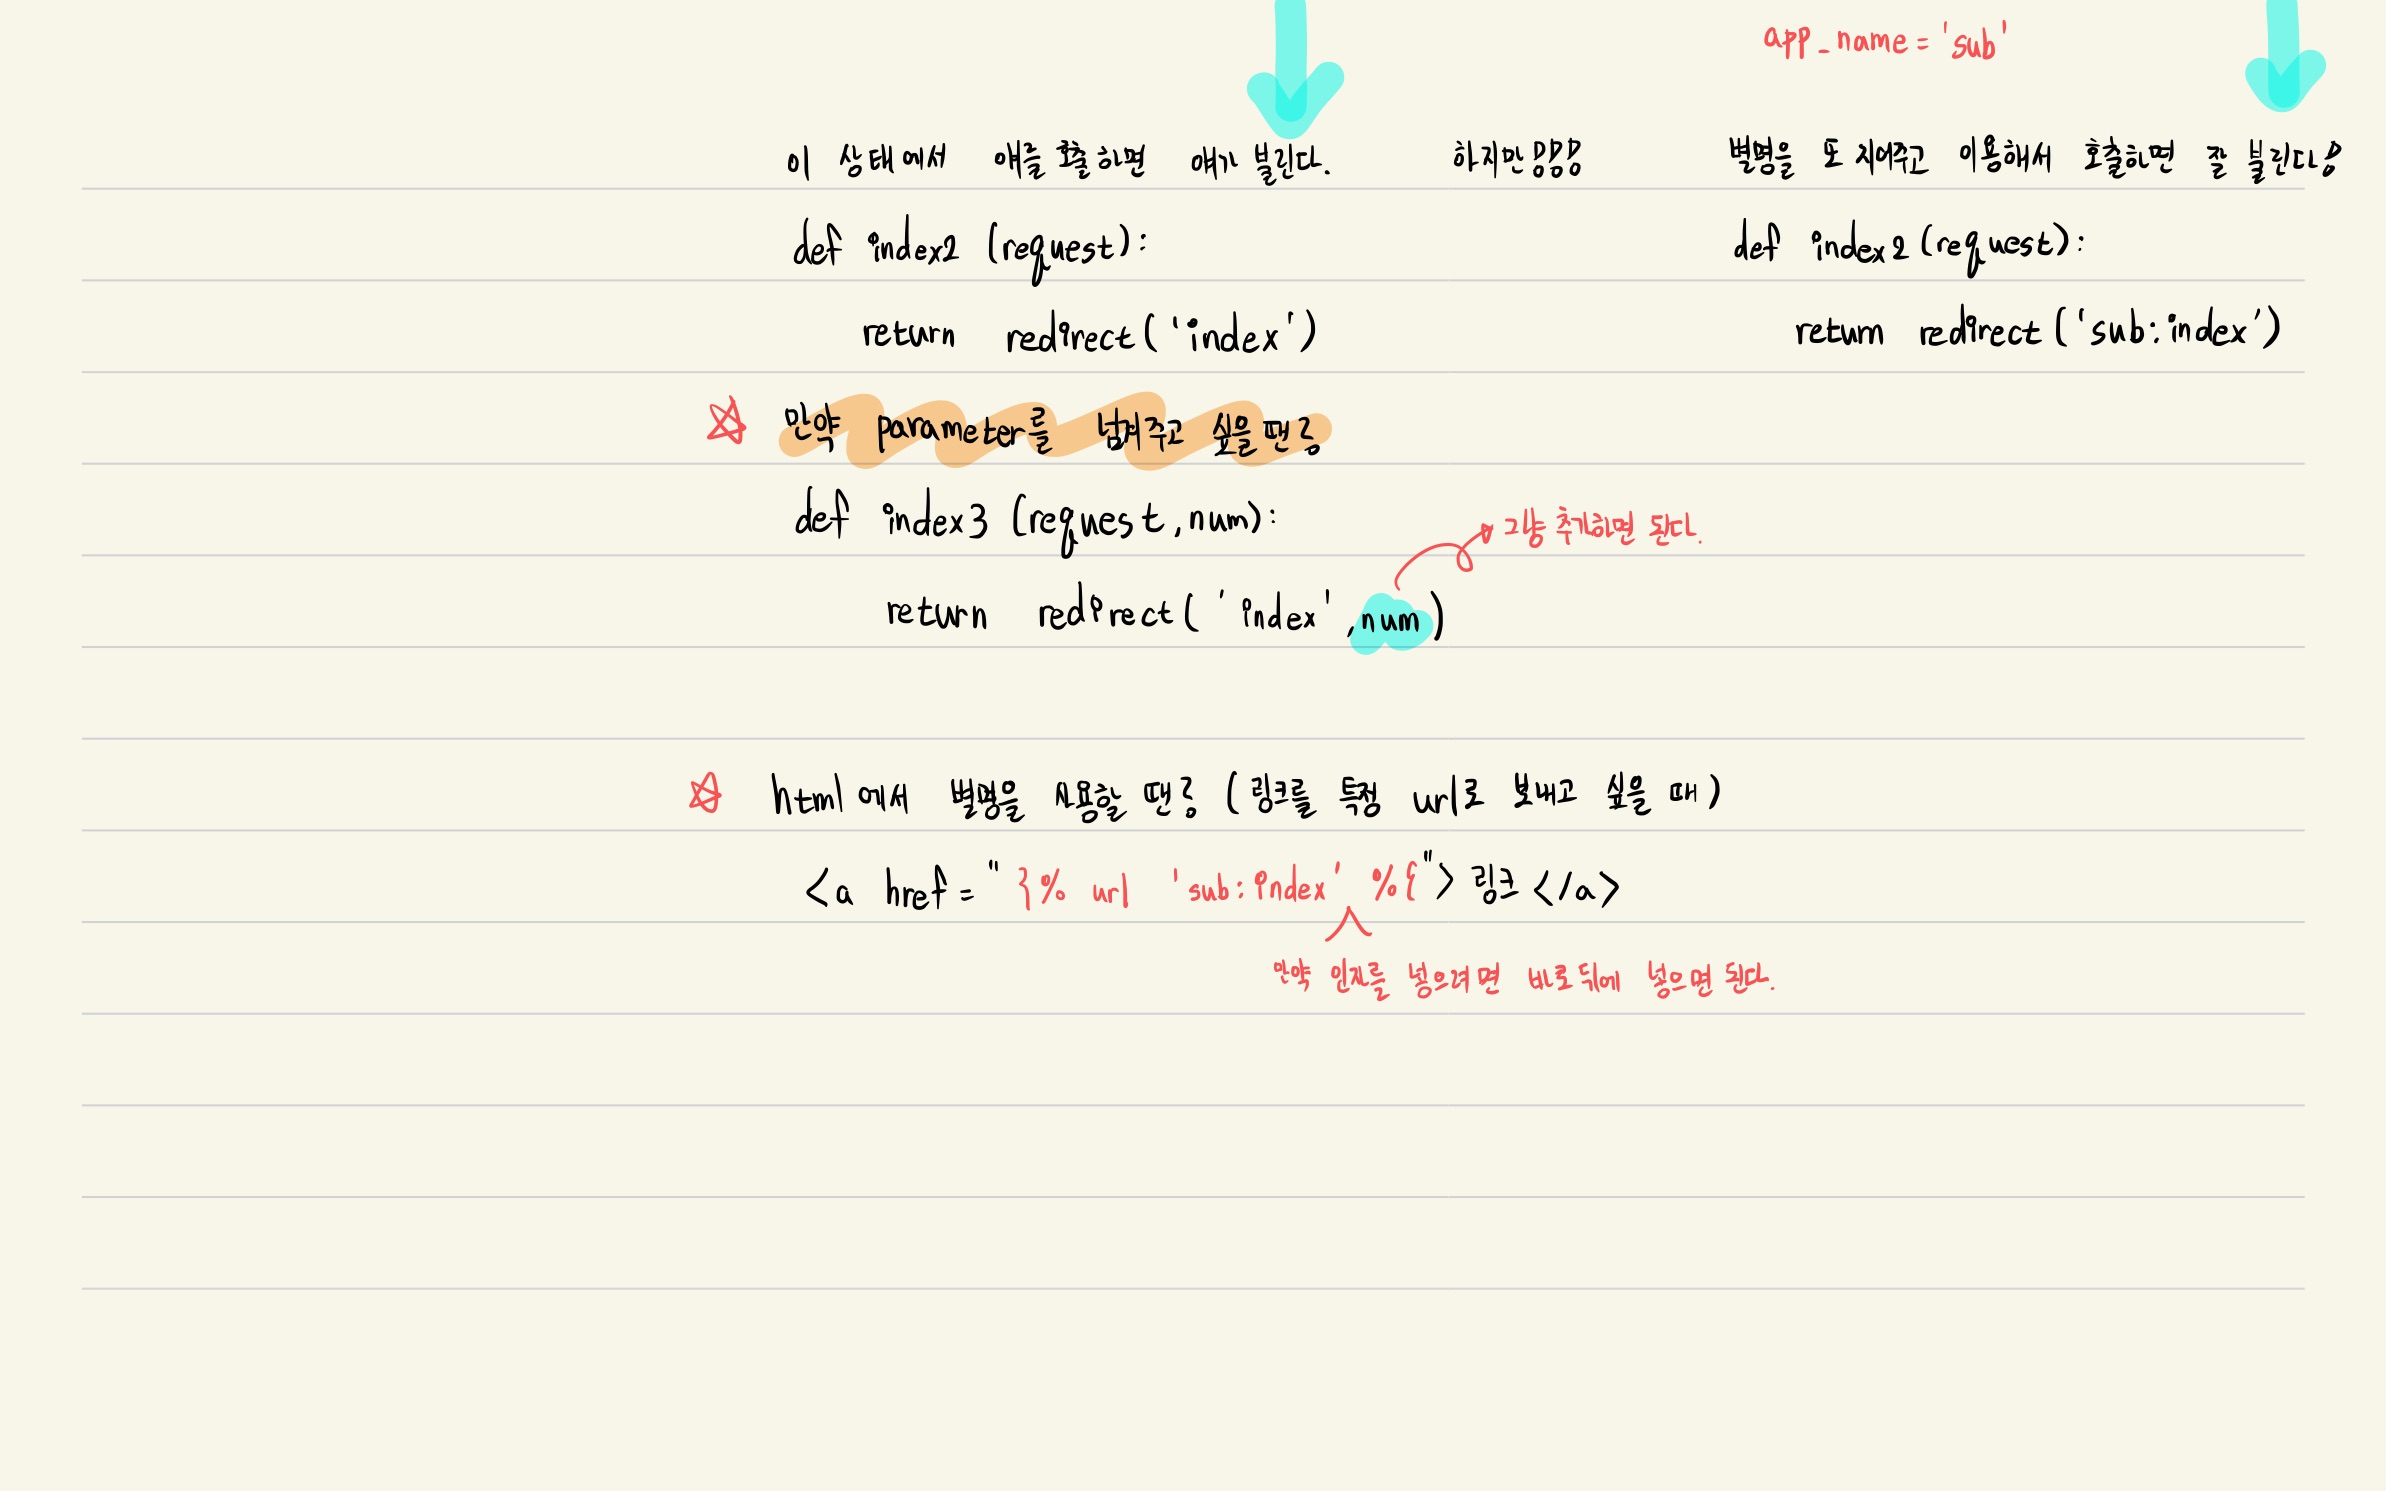 app_name = 'sub'
이 상태에서 얘를 호출하면 얘가 불린다. 하지만!!! 별명을 또 지어주고 이용해서 호출하면 잘 불린다!
def index2 (request):
return redirect('index')
def index2 (request):
return redirect('sub:index')
만약 parameter를 넘겨주고 싶을 땐?
def index3 (request, num):
return redirect('index', num)
그냥 추가하면 된다.
html에서 별명을 사용할 땐? (링크를 특정 url로 보내고 싶을 때)
<a href="}% url 'sub:index' %{">링크</a>
만약 인자를 넣으려면 바로 뒤에 넣으면 된다.